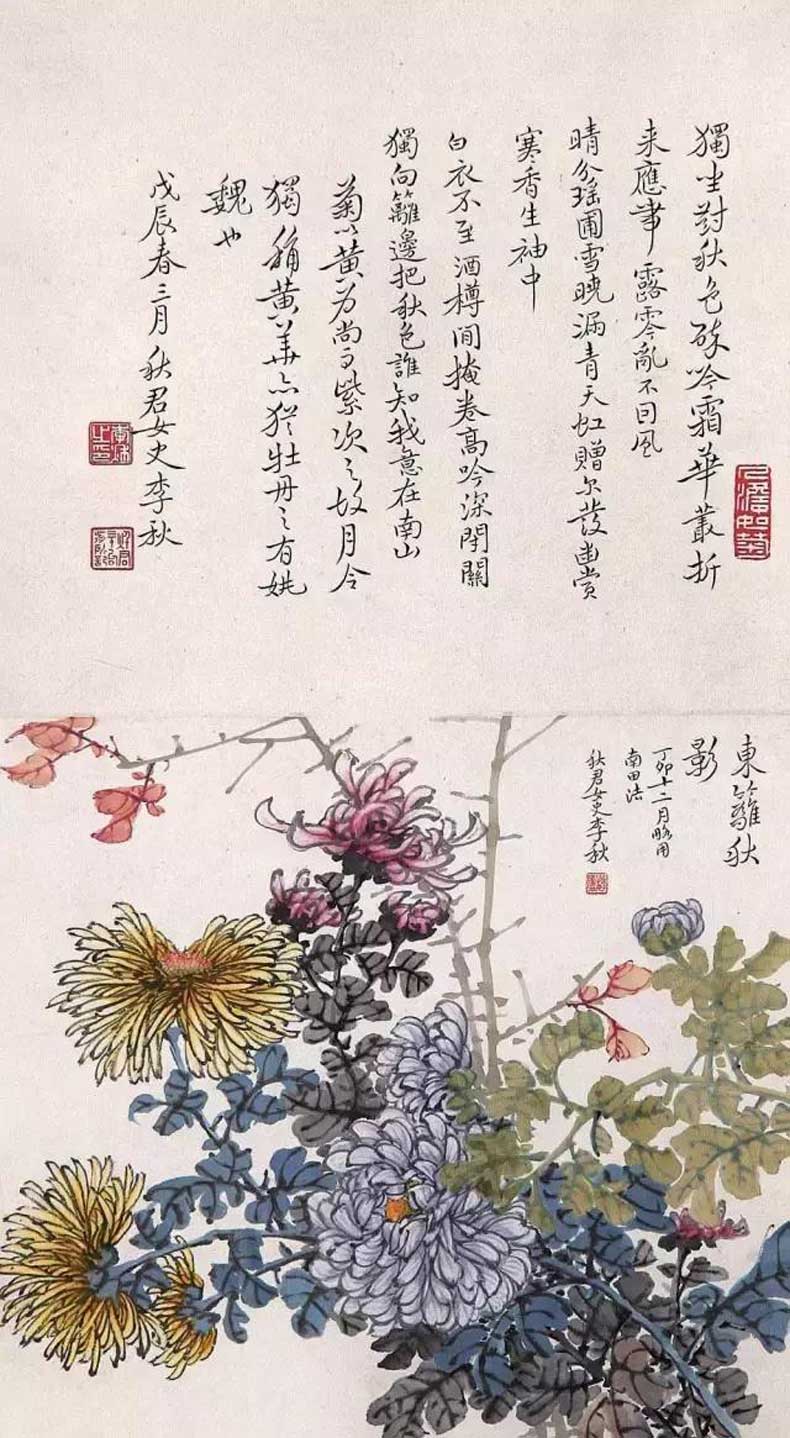 獨坐對秋色 吟霜華叢折
来應帶露零亂不因风
晴分瑶圃雪曉漏青天虹贈尔發幽賞
寒香生袖中
白衣不至酒樽閒掩卷高吟深閉關
獨向籬邊把秋色誰知我意在南山
菊以黄为尚而紫次之故月令
獨稱黄華亦猶牡丹之有姚
魏也
戊辰春三月秋君女史李秋
人澹如菊
李秋之印
東籬秋
影
丁卯十二月略用
南田法
秋君女史李秋